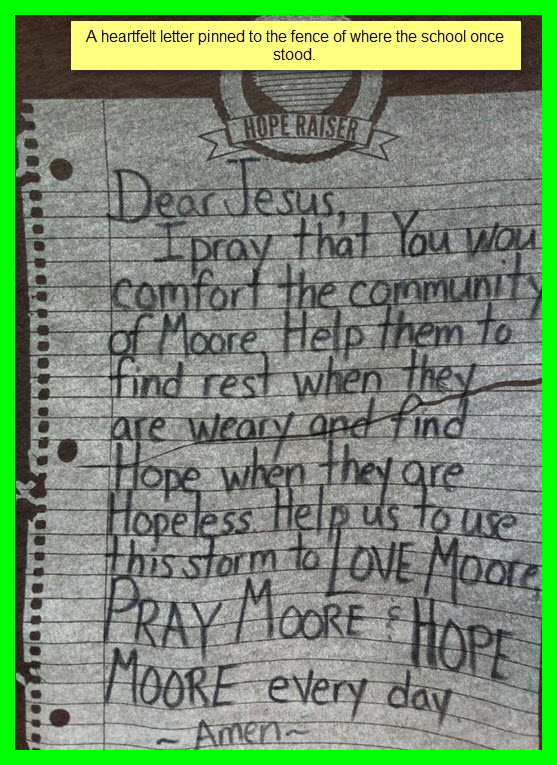 A heartfelt letter pinned to the fence of where the school once
stood.
HOPE RAISER
Dear Jesus,
I pray that You wou
comfort the community
of Moore. Help them to
find rest when they
are weary and find
Hope when they are
Hopeless. Help us to use
this storm to LOVE Moore,
PRAY MOORE & HOPE
MOORE every day.
~ Amen ~